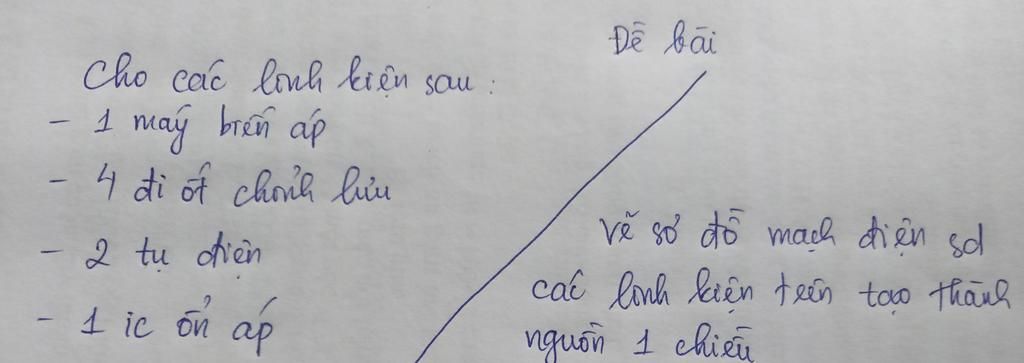 Đề bài
Cho các linh kiện sau:
- 1 máy biến áp
- 4 đi ốt chỉnh lưu
- 2 tụ điện
- 1 ic ổn áp
Vẽ sơ đồ mạch điện sd
các linh kiện trên tạo thành
nguồn 1 chiều